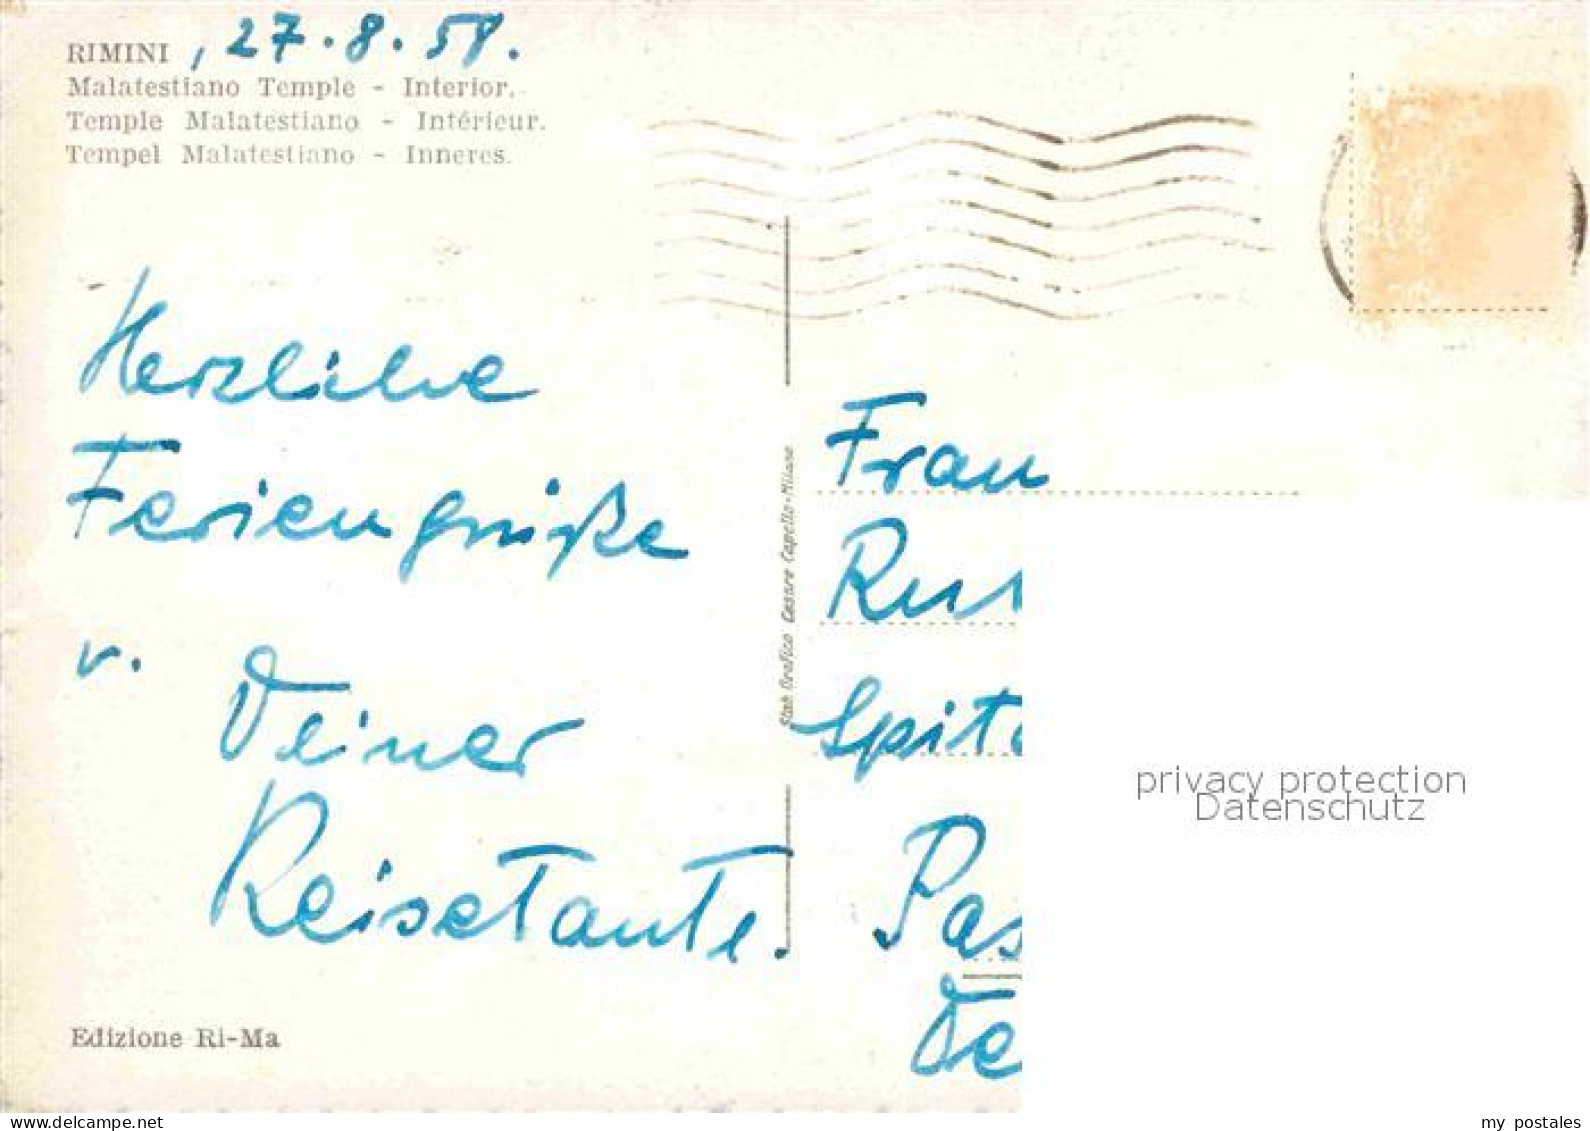 RIMINI , 27.8.58.
Malatestiano Temple - Interior.
Temple Malatestiano - Intérieur.
Tempel Malatestiano - Inneres.
Herzliche
Feriengrüße
v. Deiner
Reisetante.
Edizione Ri-Ma
Stab. Grafico Cesare Capello-Milano
Frau
Spit
Pas
De
privacy protection
Datenschutz
my postales